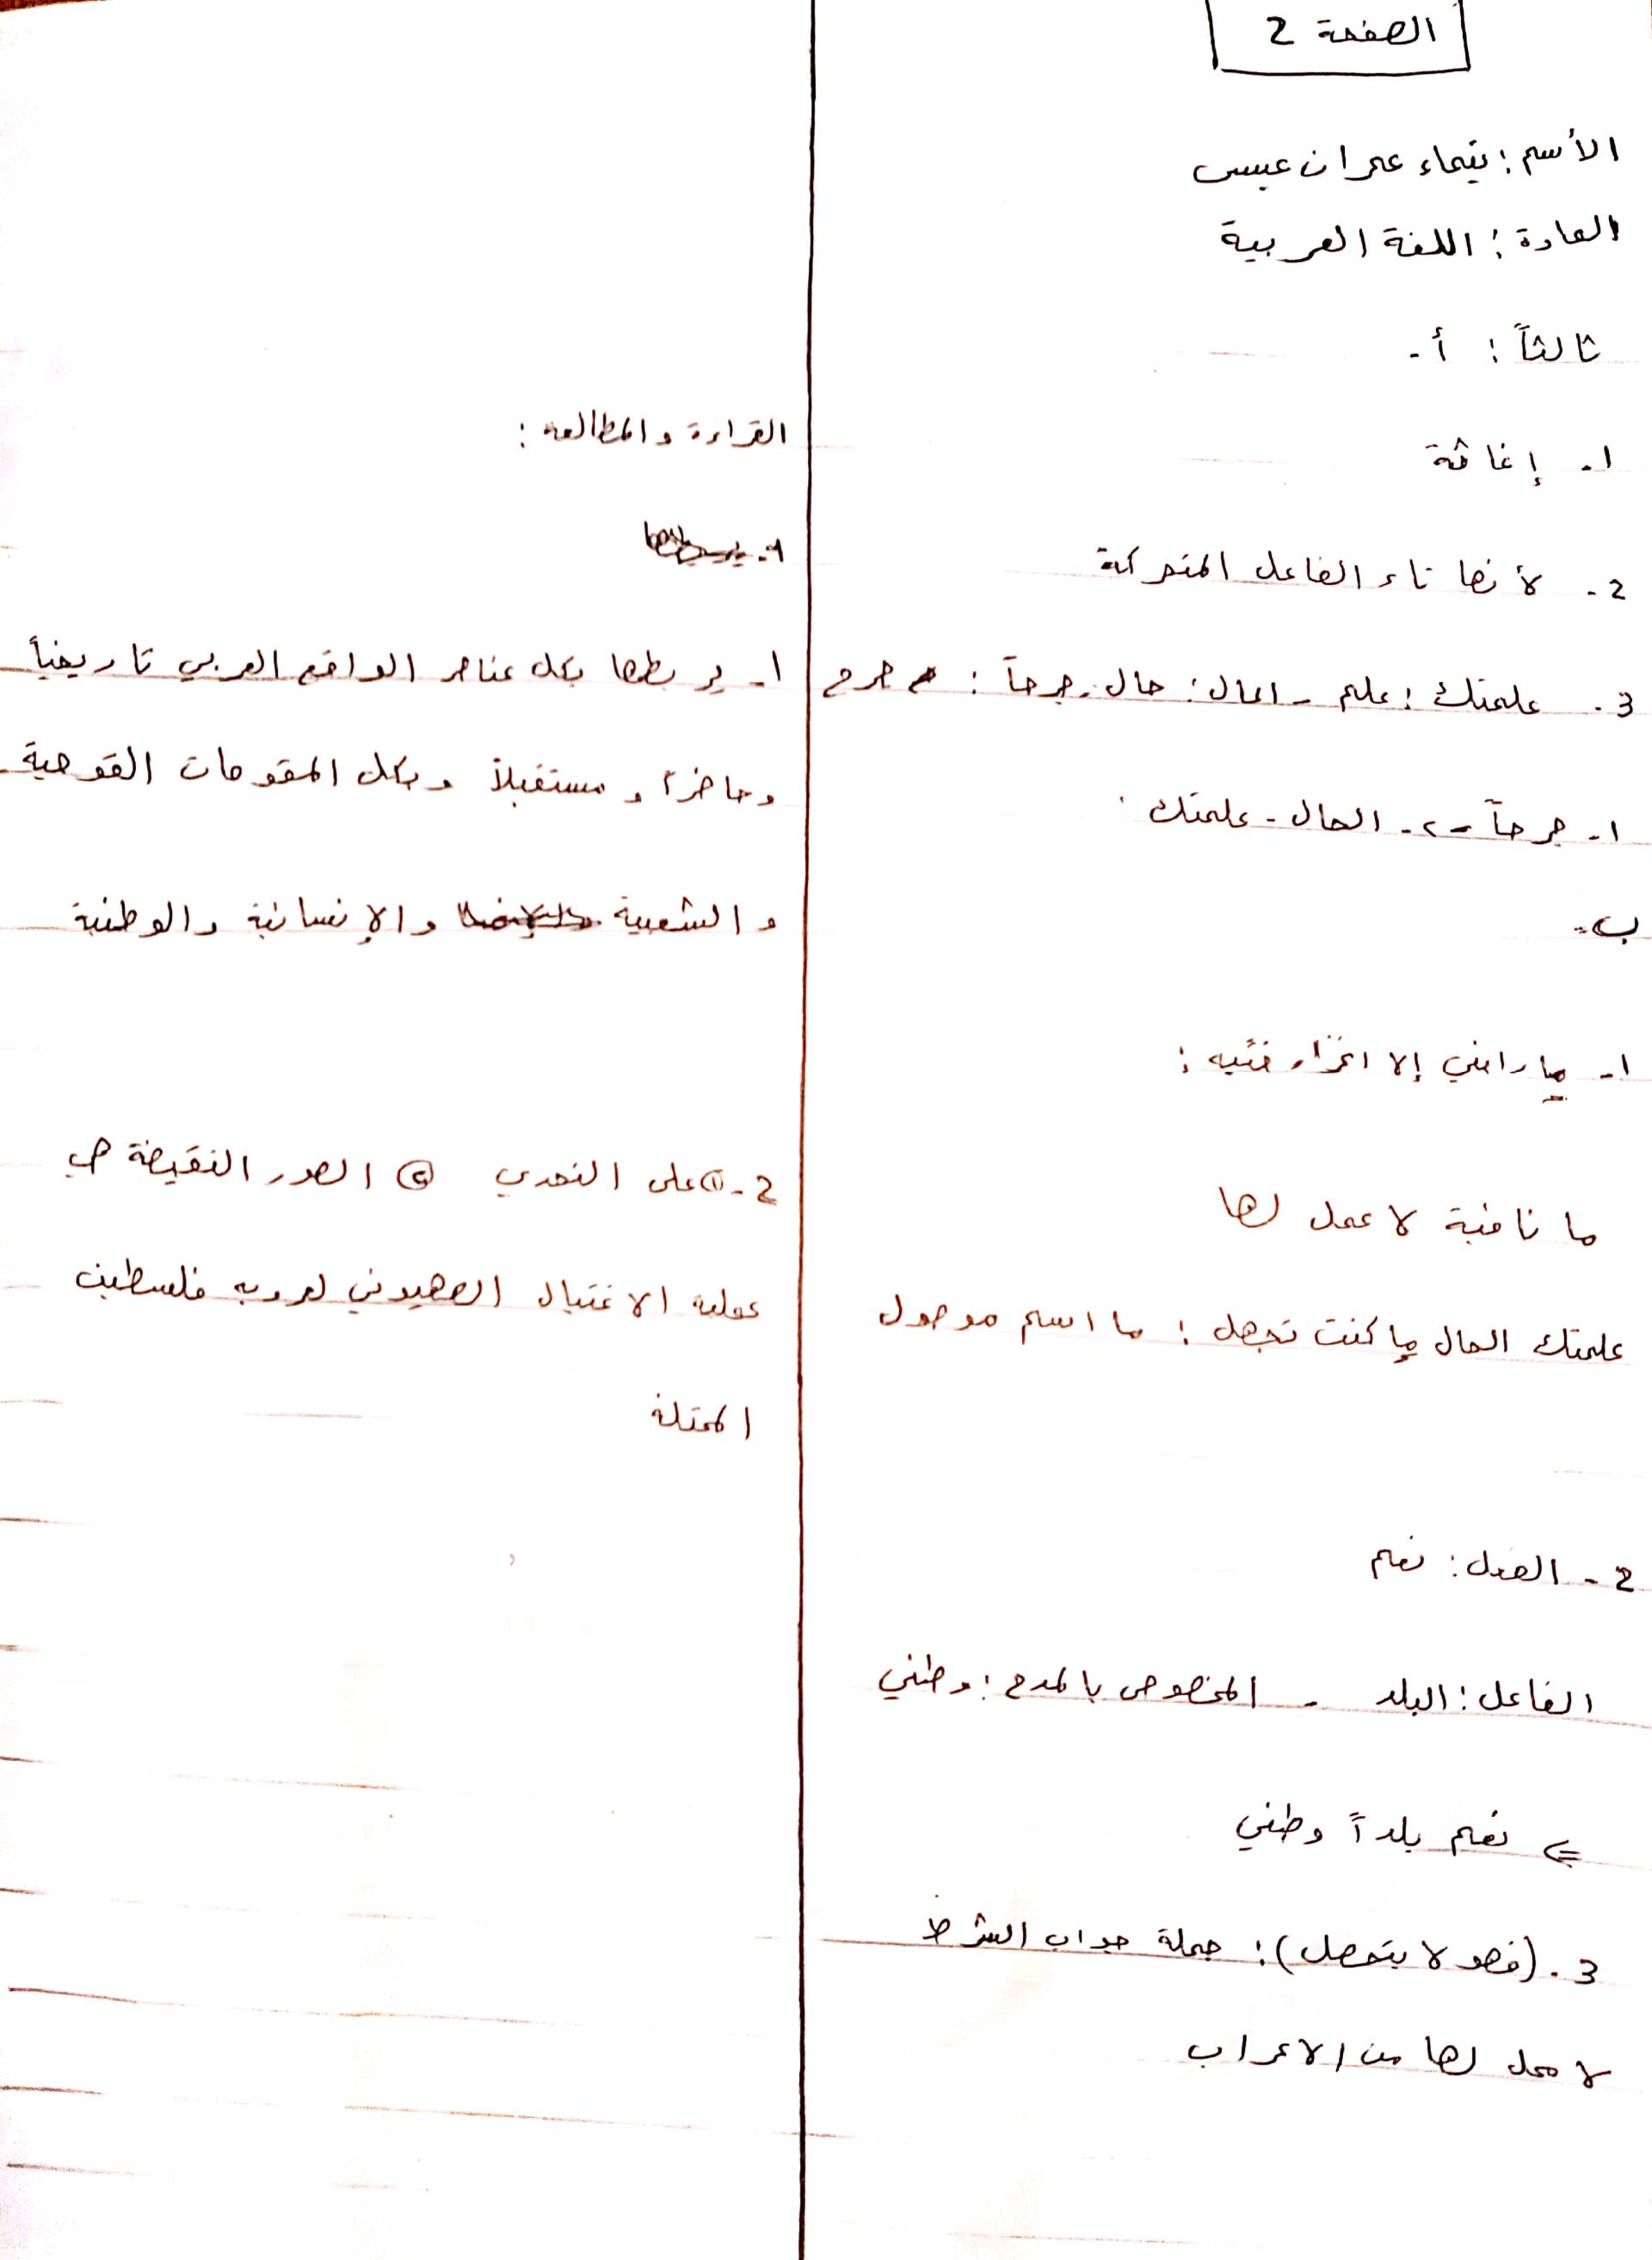 الصفحة 2
الأسم : تيماء عمران عيسى
المادة : اللغة العربية
ثالثاً : أ -
1- إغاثة
2- لأنها تاء الفاعل المتحركة
3. علمتك : علم - الحال : حال . جرحاً : جرح
1- جرحاً - 2- الحال - علمتك
ب-
1- ما راعني إلا اغزار فتيه :
ما نافية لا عمل لها
علمتك الحال ما كنت تجهل : ما اسم موصول
2- الفعل : نعم
الفاعل : البلد - المخصوص بالمدح : وطني
<= نعم بلداً وطني
3. (فهو لا يتحصل) : جملة جواب الشرط
لا محل لها من الاعراب
القراءة والمطالعه :
1- يربطها بكل عناصر الواقع العربي تاريخياً
وحاضراً و مستقبلاً وبكل المقومات القومية
والشعبية والإنسانية والوطنية
2- ① على التحدي ② الصور النقيضة هي
عملية الاغتيال الصهيوني لعروبه فلسطين
المحتلة